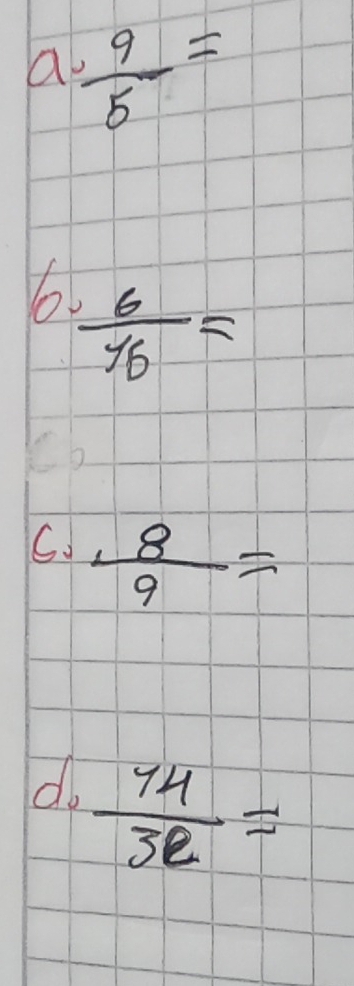 a. 9/5 =
b. 6/16 =
c. 8/9 =
d. 14/32 =